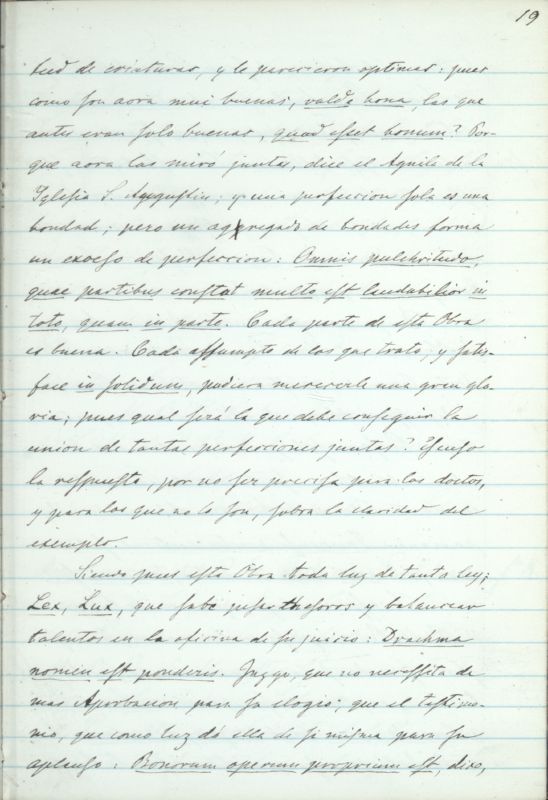 19
tud de criaturas, y le parecieron optimas: pues
como son aora mui buenas, valde bona, las que
antes eran solo buenas, quod esset bonum? Por-
que aora las miró juntas, dice el Aguila de la
Iglesia S. Augustin; y una perfeccion sola es una
bondad; pero un aggregado de bondades forma
un exceso de perfeccion: Omnis pulchritudo,
quae partibus constat multo est laudabilior in
toto, quam in parte. Cada parte de esta Obra
es buena. Cada assumpto de los que trata, y satis-
face in solidum, pudiera merecerle una gran glo-
ria; pues qual será la que debe conseguir la
union de tantas perfecciones juntas? Escuso
la respuesta, por no ser precisa para los doctos,
y para los que no lo son, sobra la claridad del
exemplo.
Siendo pues esta Obra toda luz de tanta ley;
Lex, Lux, que sabe pesar thesoros y balancear
talentos en la oficina de su juicio: Drachma
nomen est ponderis. Juzgo, que no necessita de
mas Aprobacion para su elogio, que el testimo-
nio, que como luz dá ella de si misma para su
aplauso: Bonorum operum proprium est, dixo,